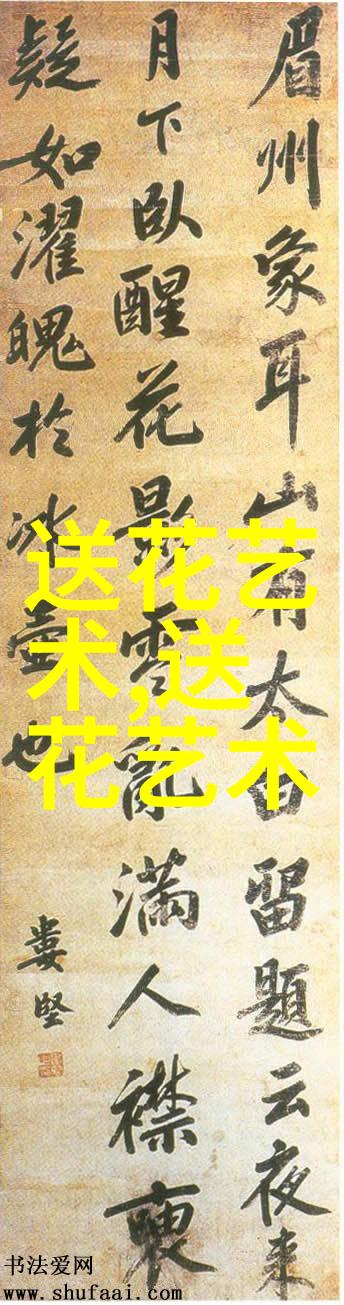 眉州象耳山有太白留題云夜来
月下臥醒花影零亂滿人襟
疑如濯魄於冰壺也
婁堅
送花艺
术,送
花艺术
书法爱网
www.shufaai.com